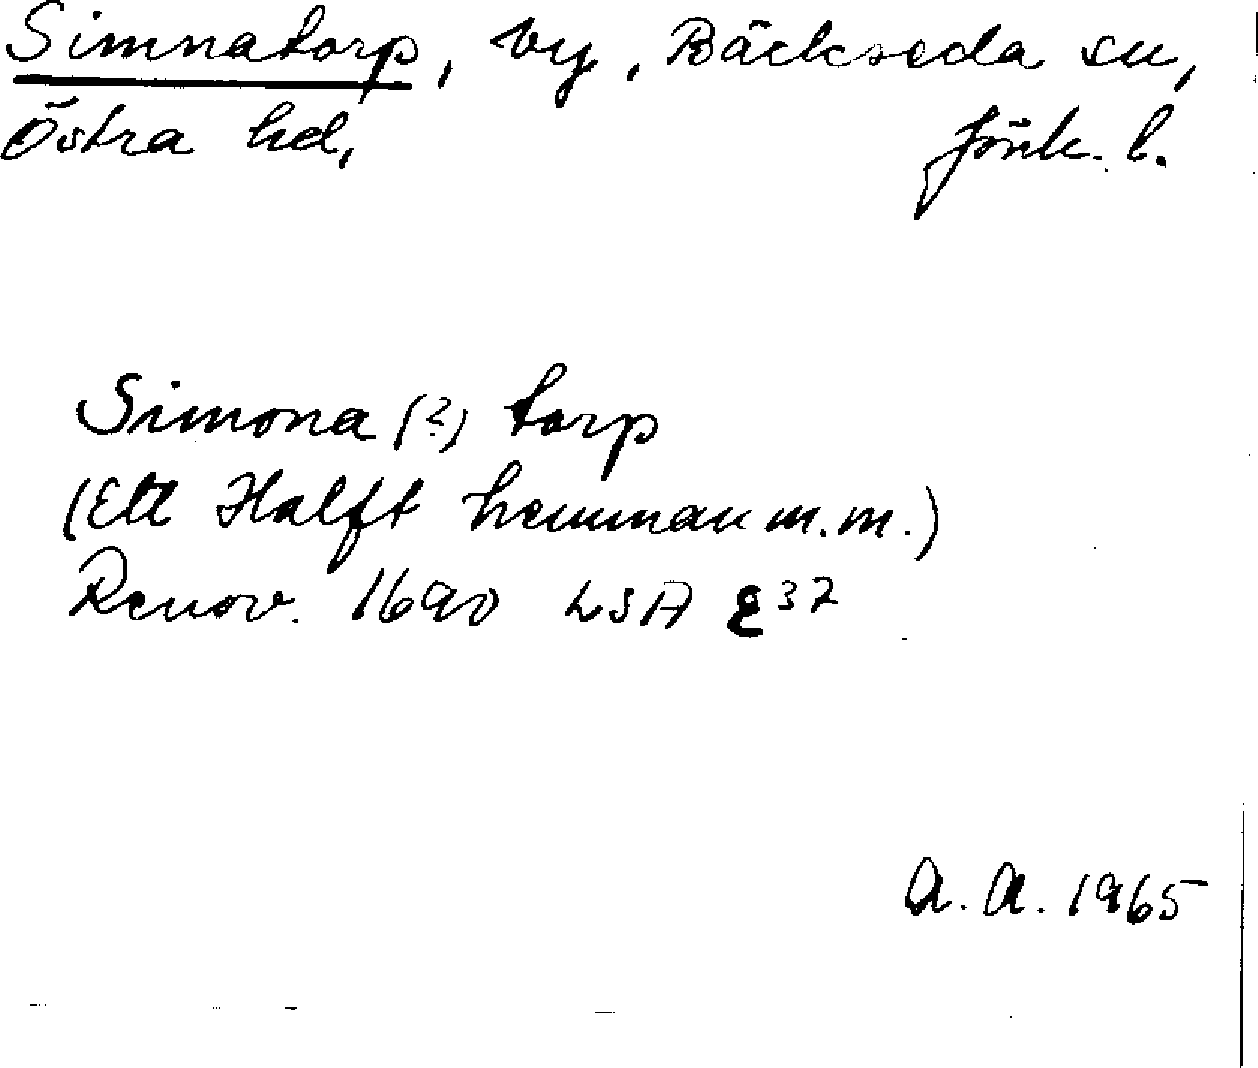 Simnatorp, by, Bäckseda sn,
Östra hd, Jönk. l.
Simona (?) torp
(Ett Halft hemman m.m.)
Renov. 1690 LSA E37
A. A. 1965